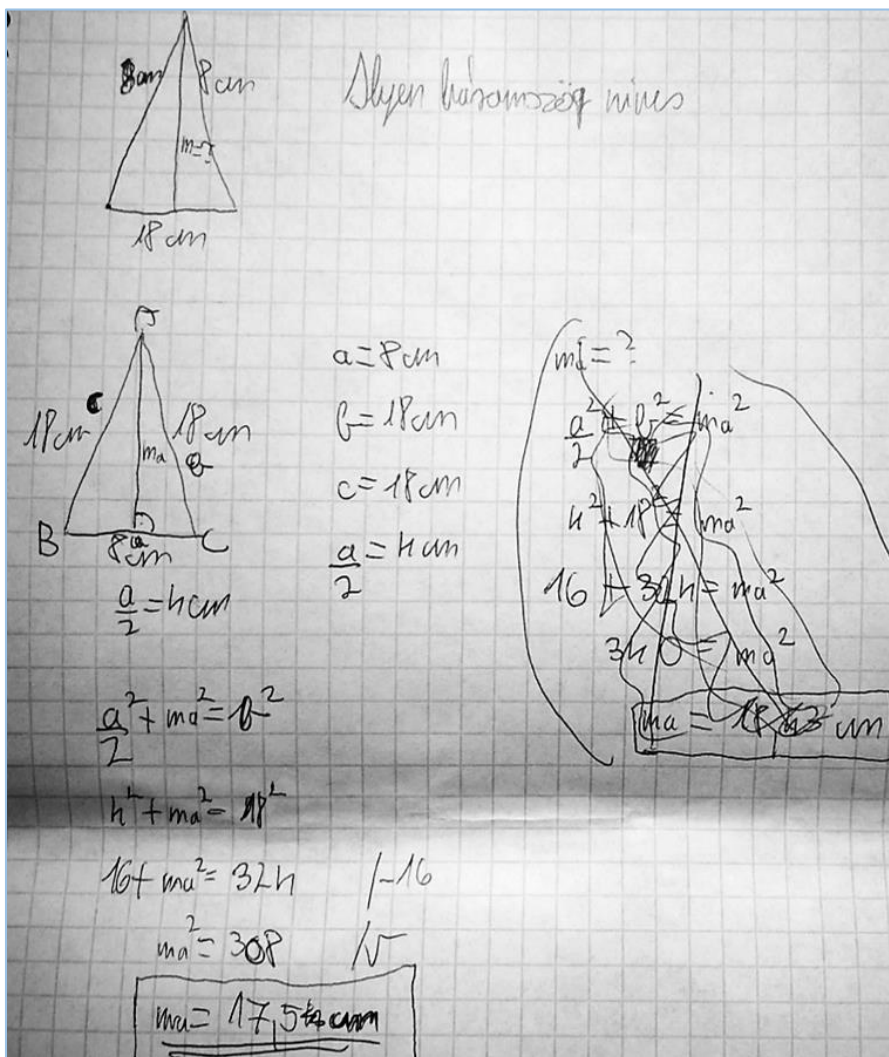 8cm 8cm
m=?
18cm
Ilyen háromszög nincs
A
18cm c 18cm b
ma
B 8cm a C
a/2 = 4cm
a = 8cm
b = 18cm
c = 18cm
a/2 = 4cm
a²/2 + ma² = b²
4² + ma² = 18²
16 + ma² = 324 /-16
ma² = 308 /√
ma = 17,5 cm
a²/2 + b² = ma²
4² + 18² = ma²
16 + 324 = ma²
340 = ma²